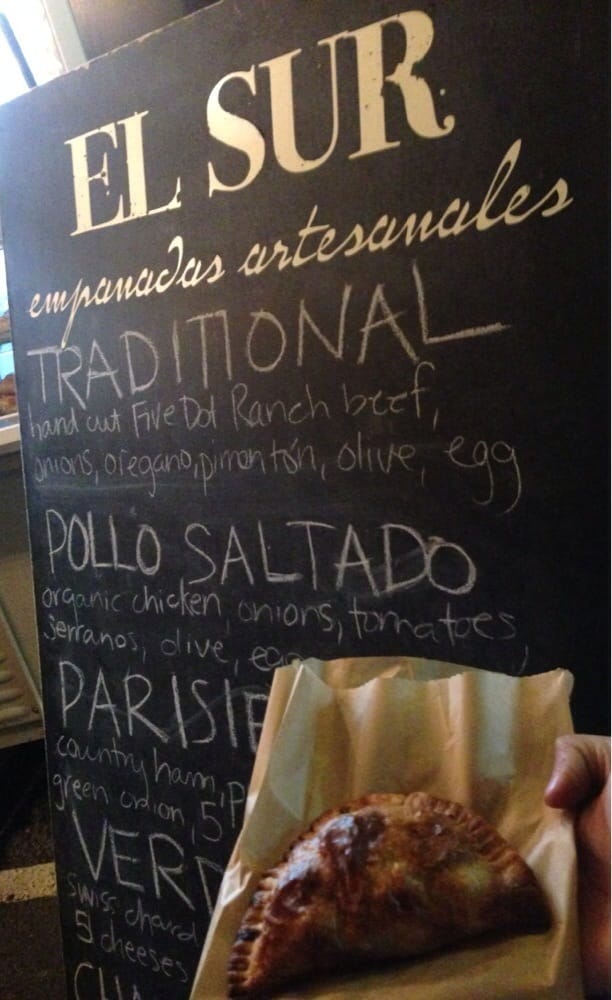 EL SUR
empanadas artesanales
TRADITIONAL
hand cut Five Dot Ranch beef,
onions, oregano, pimentón, olive, egg
POLLO SALTADO
organic chicken, onions, tomatoes,
serranos, olive, egg
PARISIE
country ham, P
green onion, 5
VERD
swiss chard
5 cheeses
CHA